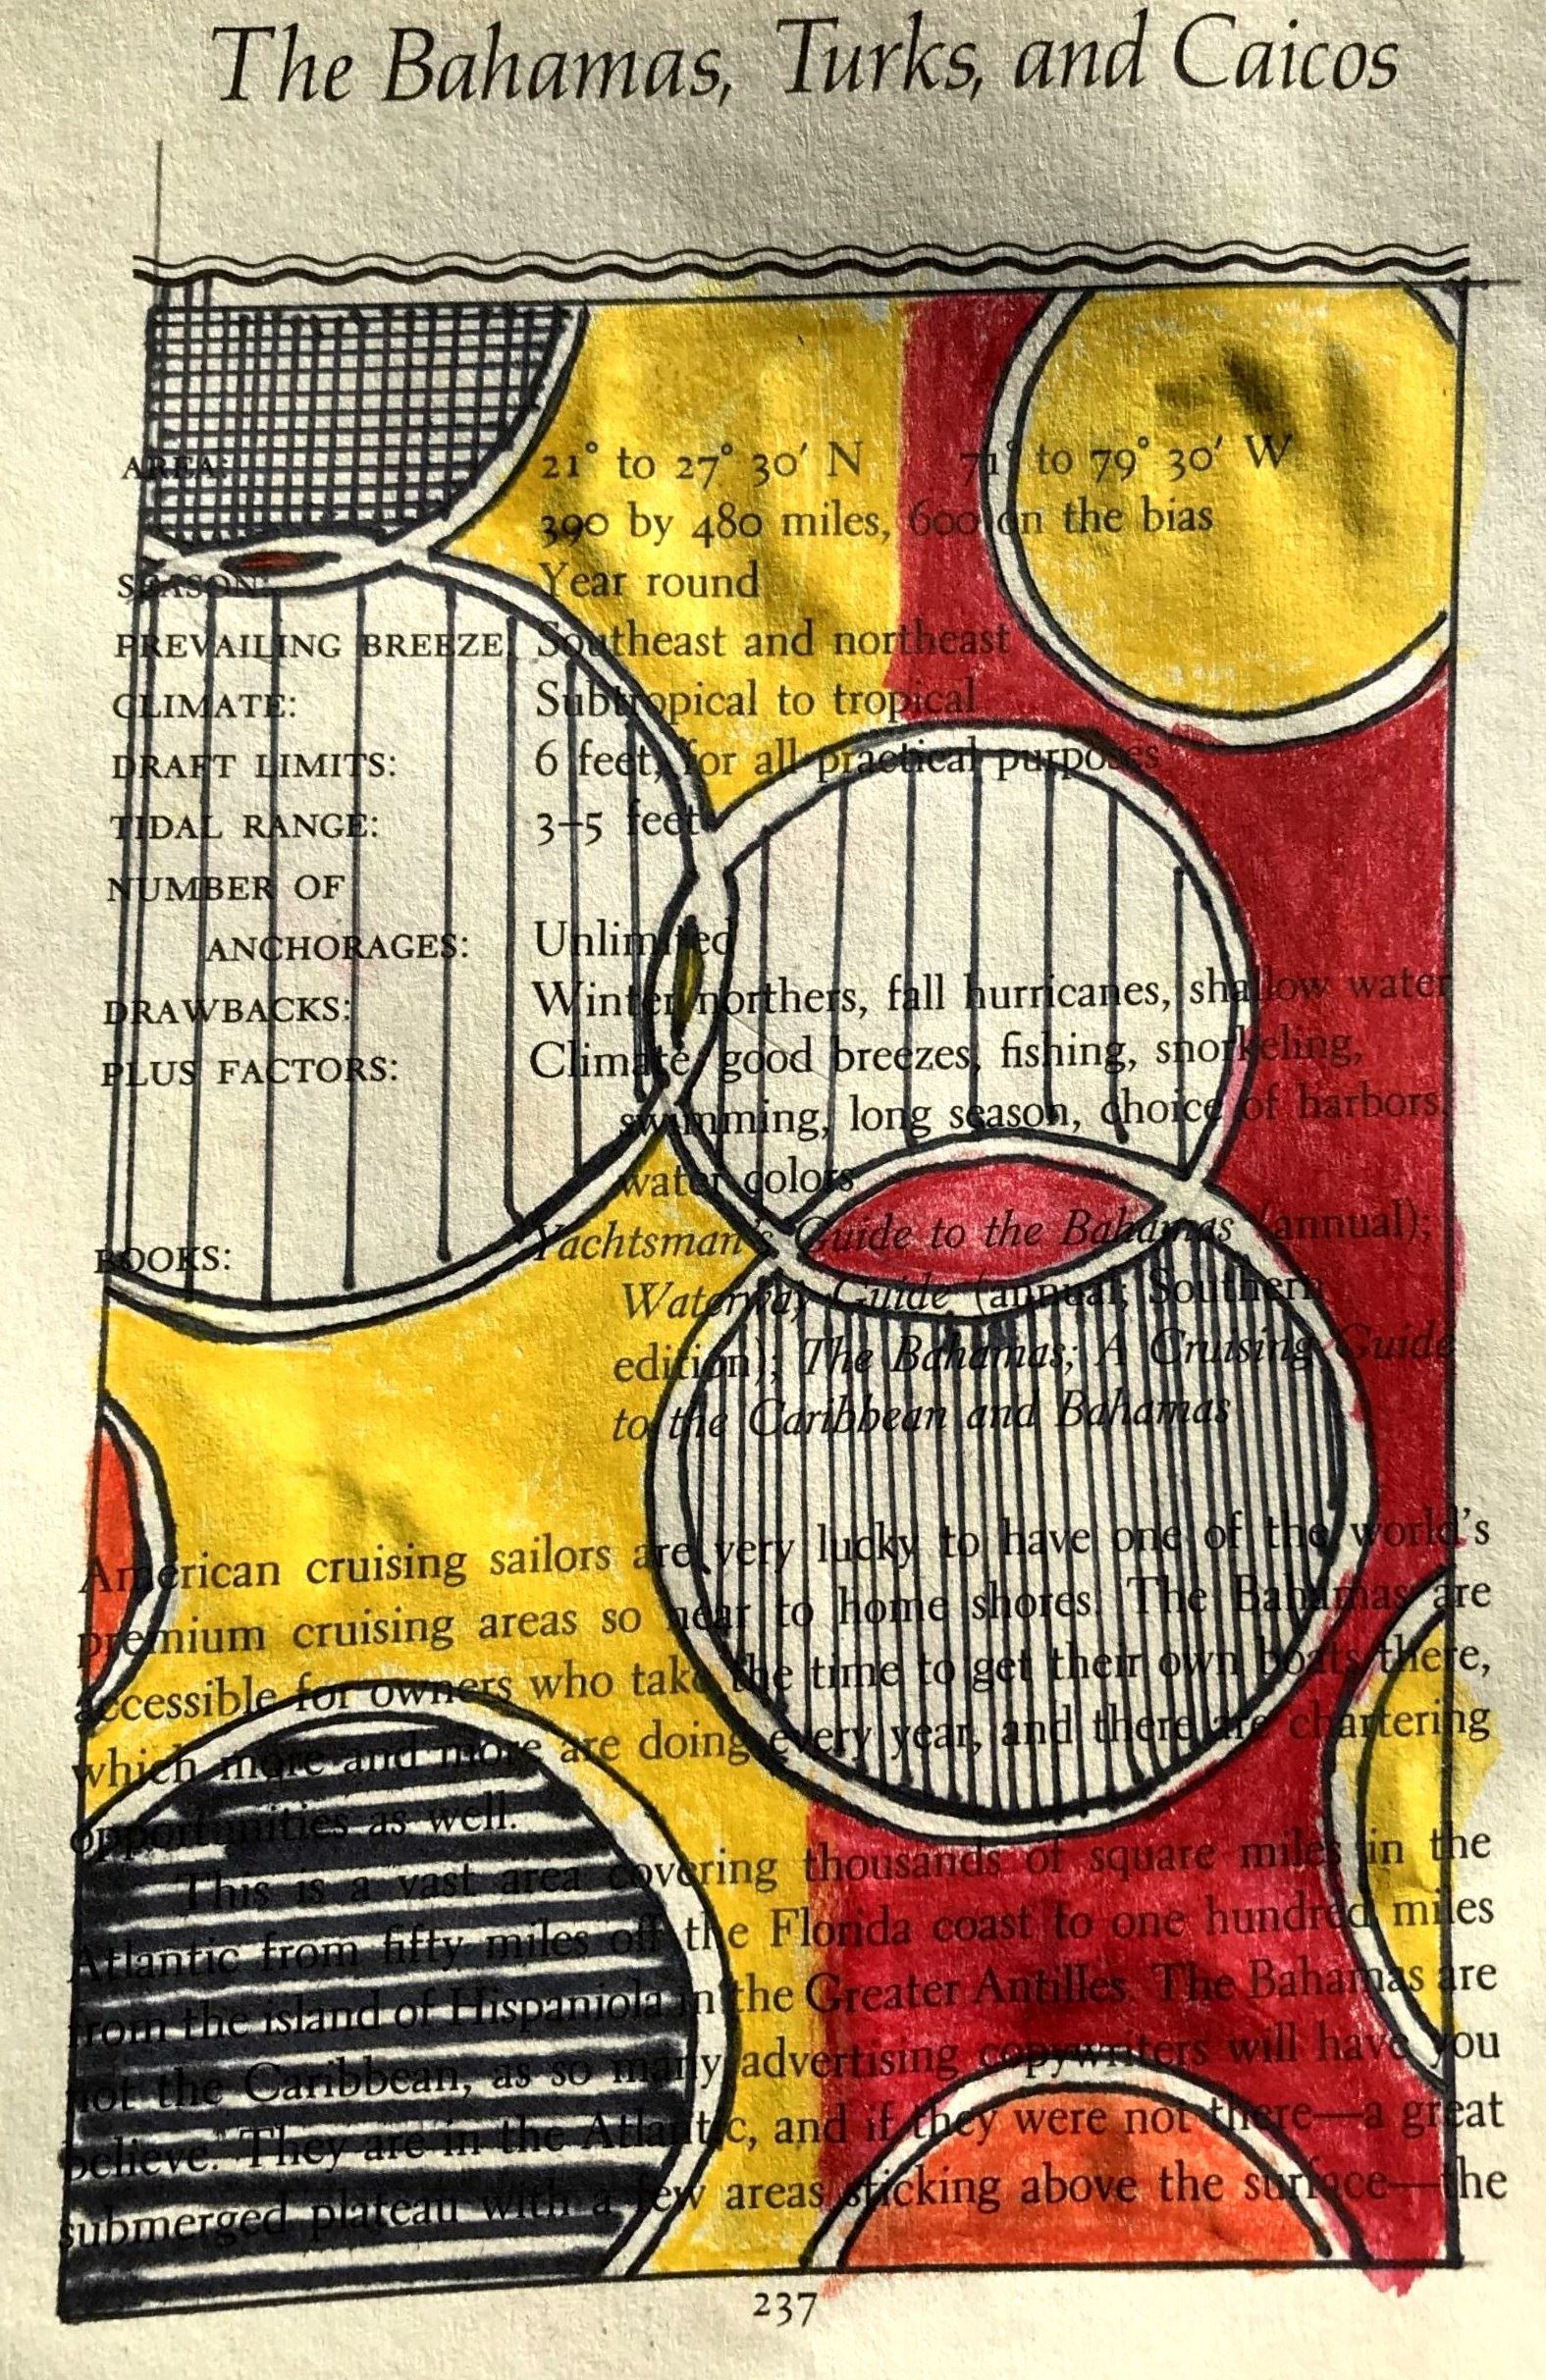 The Bahamas, Turks, and Caicos
AREA: 21° to 27° 30′ N 71° to 79° 30′ W
390 by 480 miles, 600 on the bias
SEASON: Year round
PREVAILING BREEZE: Southeast and northeast
CLIMATE: Subtropical to tropical
DRAFT LIMITS: 6 feet, for all practical purposes
TIDAL RANGE: 3–5 feet
NUMBER OF
ANCHORAGES: Unlimited
DRAWBACKS: Winter northers, fall hurricanes, shallow water
PLUS FACTORS: Climate, good breezes, fishing, snorkeling,
swimming, long season, choice of harbors,
water colors
BOOKS: Yachtsman's Guide to the Bahamas (annual);
Waterway Guide (annual; Southern
edition); The Bahamas; A Cruising Guide
to the Caribbean and Bahamas
American cruising sailors are very lucky to have one of the world's
premium cruising areas so near to home shores. The Bahamas are
accessible for owners who take the time to get their own boats there,
which more and more are doing every year, and there are chartering
opportunities as well.
This is a vast area covering thousands of square miles in the
Atlantic from fifty miles off the Florida coast to one hundred miles
from the island of Hispaniola in the Greater Antilles. The Bahamas are
not the Caribbean, as so many advertising copywriters will have you
believe. They are in the Atlantic, and if they were not there—a great
submerged plateau with a few areas sticking above the surface—the
237